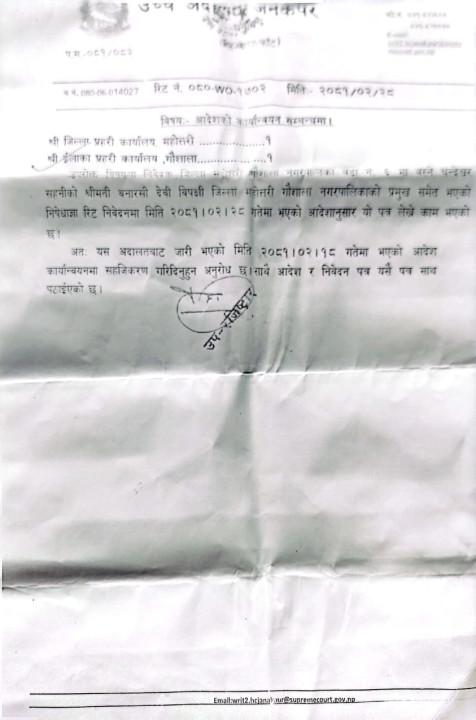 उच्च अदालत जनकपुर
प.स.-०८१/०८२
व.नं. 080-06-014027 रिट नं. ०८०-WO-१७०२ मिति:- २०८१/०२/२८
विषय:- आदेशको कार्यान्वयन सम्बन्धमा।
श्री जिल्ला प्रहरी कार्यालय, महोत्तरी ..................१
श्री ईलाका प्रहरी कार्यालय ,गौशाला..................१
उपरोक्त विषयमा निवेदक जिल्ला महोत्तरी गौशाला नगरपालिका वडा नं. ६ मा बस्ने चन्देश्वर
सहनीको श्रीमती बनारसी देवी विपक्षी जिल्ला महोत्तरी गौशाला नगरपालिकाको प्रमुख समेत भएको
निषेधाज्ञा रिट निवेदनमा मिति २०८१।०२।२८ गतेमा भएको आदेशानुसार यो पत्र लेख्ने काम भएको
छ।
अतः यस अदालतबाट जारी भएको मिति २०८१।०२।१८ गतेमा भएको आदेश
कार्यान्वयनमा सहजिकरण गरिदिनुहुन अनुरोध छ।साथै आदेश र निवेदन पत्र यसै पत्र साथ
पठाईएको छ।
उप-रजिष्ट्रार
Email:writ2.hcjanakpur@supremecourt.gov.np